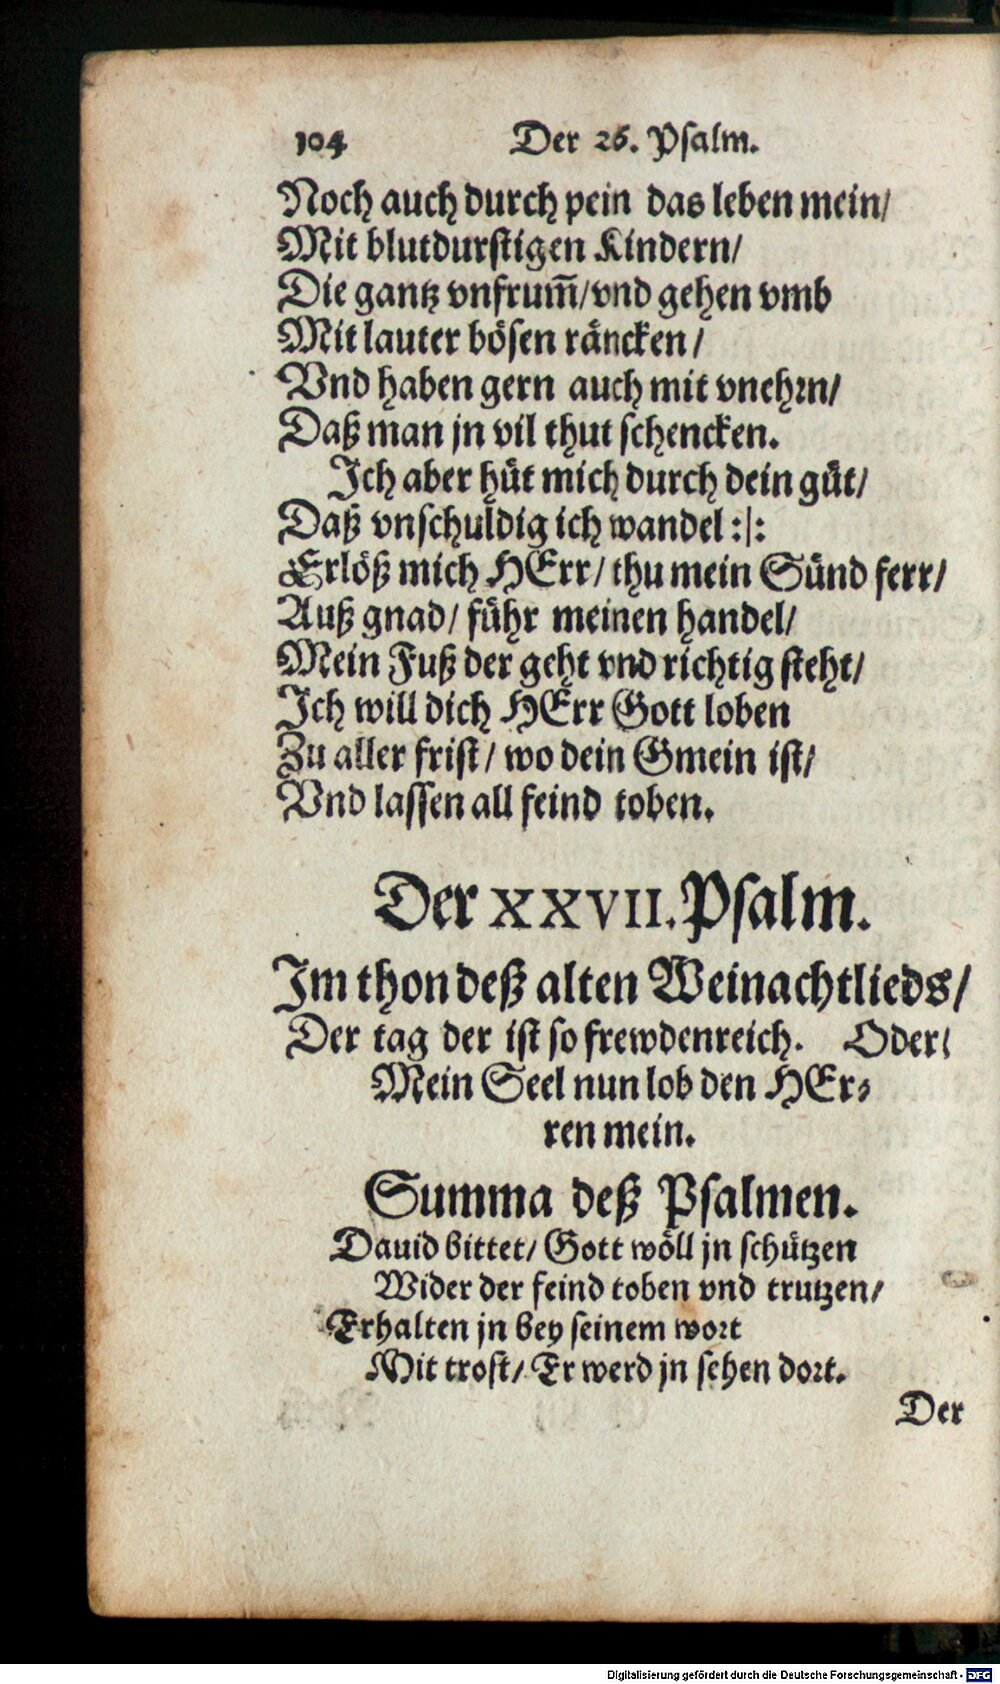 104 Der 26. Psalm.
Noch auch durch pein das leben mein/
Mit blutdurstigen Kindern/
Die gantz vnfrum̅/vnd gehen vmb
Mit lauter bösen räncken/
Vnd haben gern auch mit vnehrn/
Daß man jn vil thut schencken.
Ich aber hüt mich durch dein güt/
Daß vnschuldig ich wandel :|:
Erlöß mich HErr/ thu mein Sünd ferr/
Auß gnad/ führ meinen handel/
Mein Fuß der geht vnd richtig steht/
Ich will dich HErr Gott loben
Zu aller frist/ wo dein Gmein ist/
Vnd lassen all feind toben.
Der XXVII. Psalm.
Im thon deß alten Weinachtlieds/
Der tag der ist so frewdenreich. Oder/
Mein Seel nun lob den HEr⸗
ren mein.
Summa deß Psalmen.
Dauid bittet/ Gott wöll jn schützen
Wider der feind toben vnd trutzen/
Erhalten jn bey seinem wort
Mit trost/ Er werd jn sehen dort.
Der
Digitalisierung gefördert durch die Deutsche Forschungsgemeinschaft - DFG